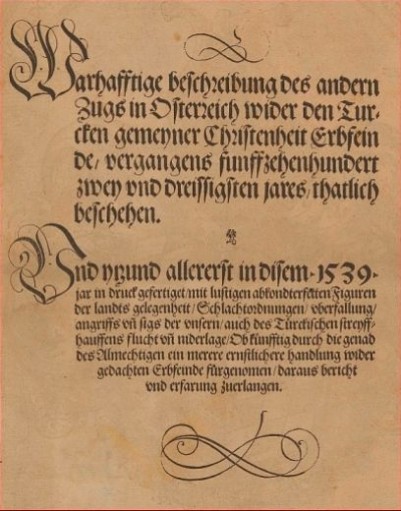 Warhafftige beschreibung des andern
Zugs in Osterreich wider den Tur-
cken gemeyner Christenheit Erbfein
de/ vergangens funffzehenhundert
zwey vnd dreissigsten jares/ thatlich
beschehen.
Vnd ytzund allererst in disem · 1539 ·
jar in druck gefertiget/ mit lustigen abkondterfecten Figuren
der landts gelegenheit/ Schlachtordnungen/ vberfallung/
angriffs vñ sigs der vnsern/ auch des Türckischen streyff-
hauffens flucht vñ niderlage/ Ob künfftig durch die genad
des Almechtigen ein merere ernstlichere handlung wider
gedachten Erbfeinde fürgenomen/ daraus bericht
vnd erfarung zuerlangen.